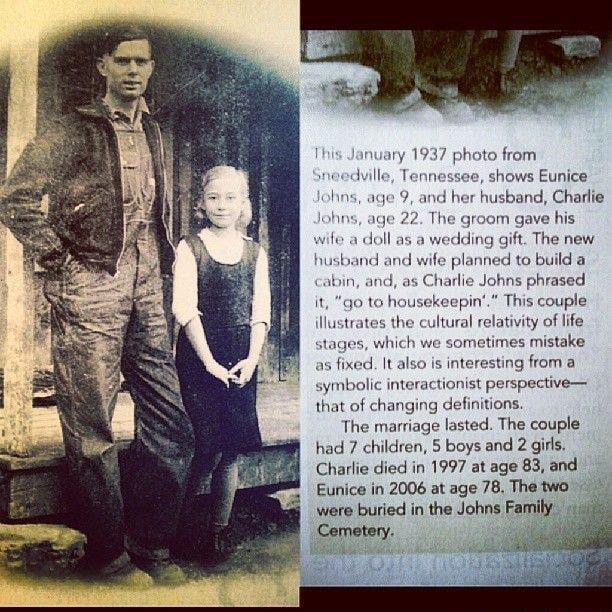 This January 1937 photo from
Sneedville, Tennessee, shows Eunice
Johns, age 9, and her husband, Charlie
Johns, age 22. The groom gave his
wife a doll as a wedding gift. The new
husband and wife planned to build a
cabin, and, as Charlie Johns phrased
it, “go to housekeepin’.” This couple
illustrates the cultural relativity of life
stages, which we sometimes mistake
as fixed. It also is interesting from a
symbolic interactionist perspective—
that of changing definitions.
The marriage lasted. The couple
had 7 children, 5 boys and 2 girls.
Charlie died in 1997 at age 83, and
Eunice in 2006 at age 78. The two
were buried in the Johns Family
Cemetery.